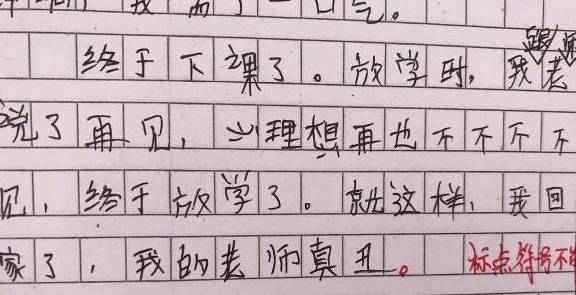 我 了一口气。
终于下课了。放学时,我跟老师
说了再见,心理想再也不不不不
见,终于放学了。就这样,我回
家了,我的老师真丑。 标点符号不